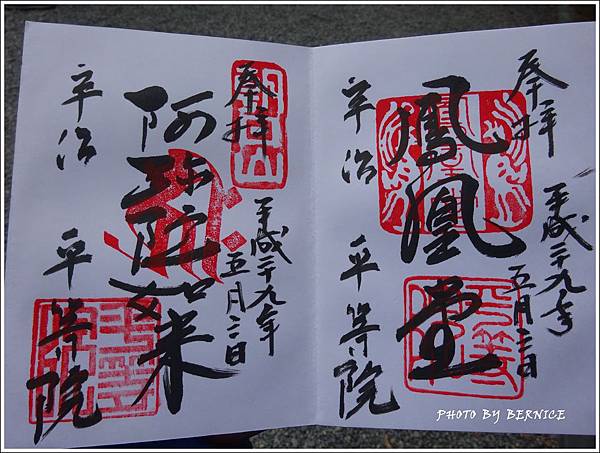 奉拝
平成二十九年
五月三日
鳳凰堂
宇治
平等院
奉拝
平成二十九年
五月三日
阿弥陀如来
宇治
平等院
PHOTO BY BERNICE